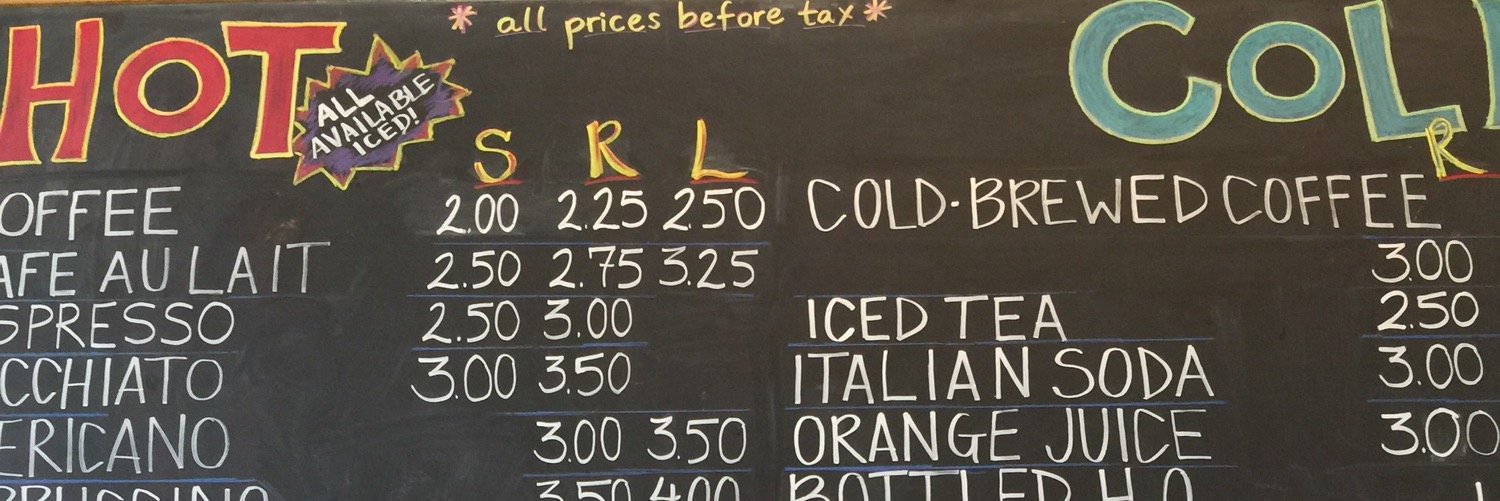 * all prices before tax *
HOT
ALL
AVAILABLE
ICED!
S R L
OFFEE 2.00 2.25 2.50
AFE AU LAIT 2.50 2.75 3.25
SPRESSO 2.50 3.00
CCHIATO 3.00 3.50
ERICANO 3.00 3.50
PPUCCINO 3.50 4.00
COL
R
COLD-BREWED COFFEE
3.00
ICED TEA 2.50
ITALIAN SODA 3.00
ORANGE JUICE 3.00
BOTTLED H2O